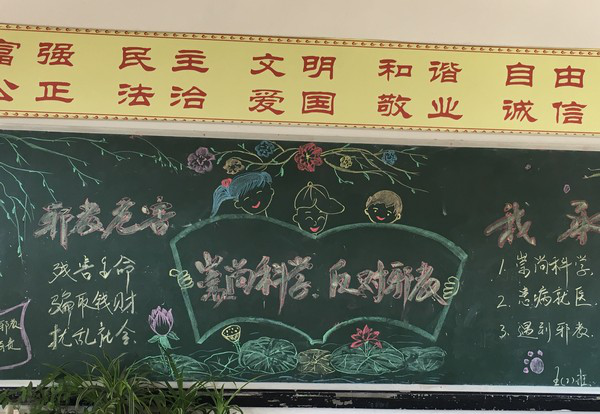 富强 民主 文明 和谐 自由
公正 法治 爱国 敬业 诚信
邪教危害
残害生命
骗取钱财
扰乱社会
崇尚科学 反对邪教
我承
1. 崇尚科学
2. 患病就医
3. 遇到邪教